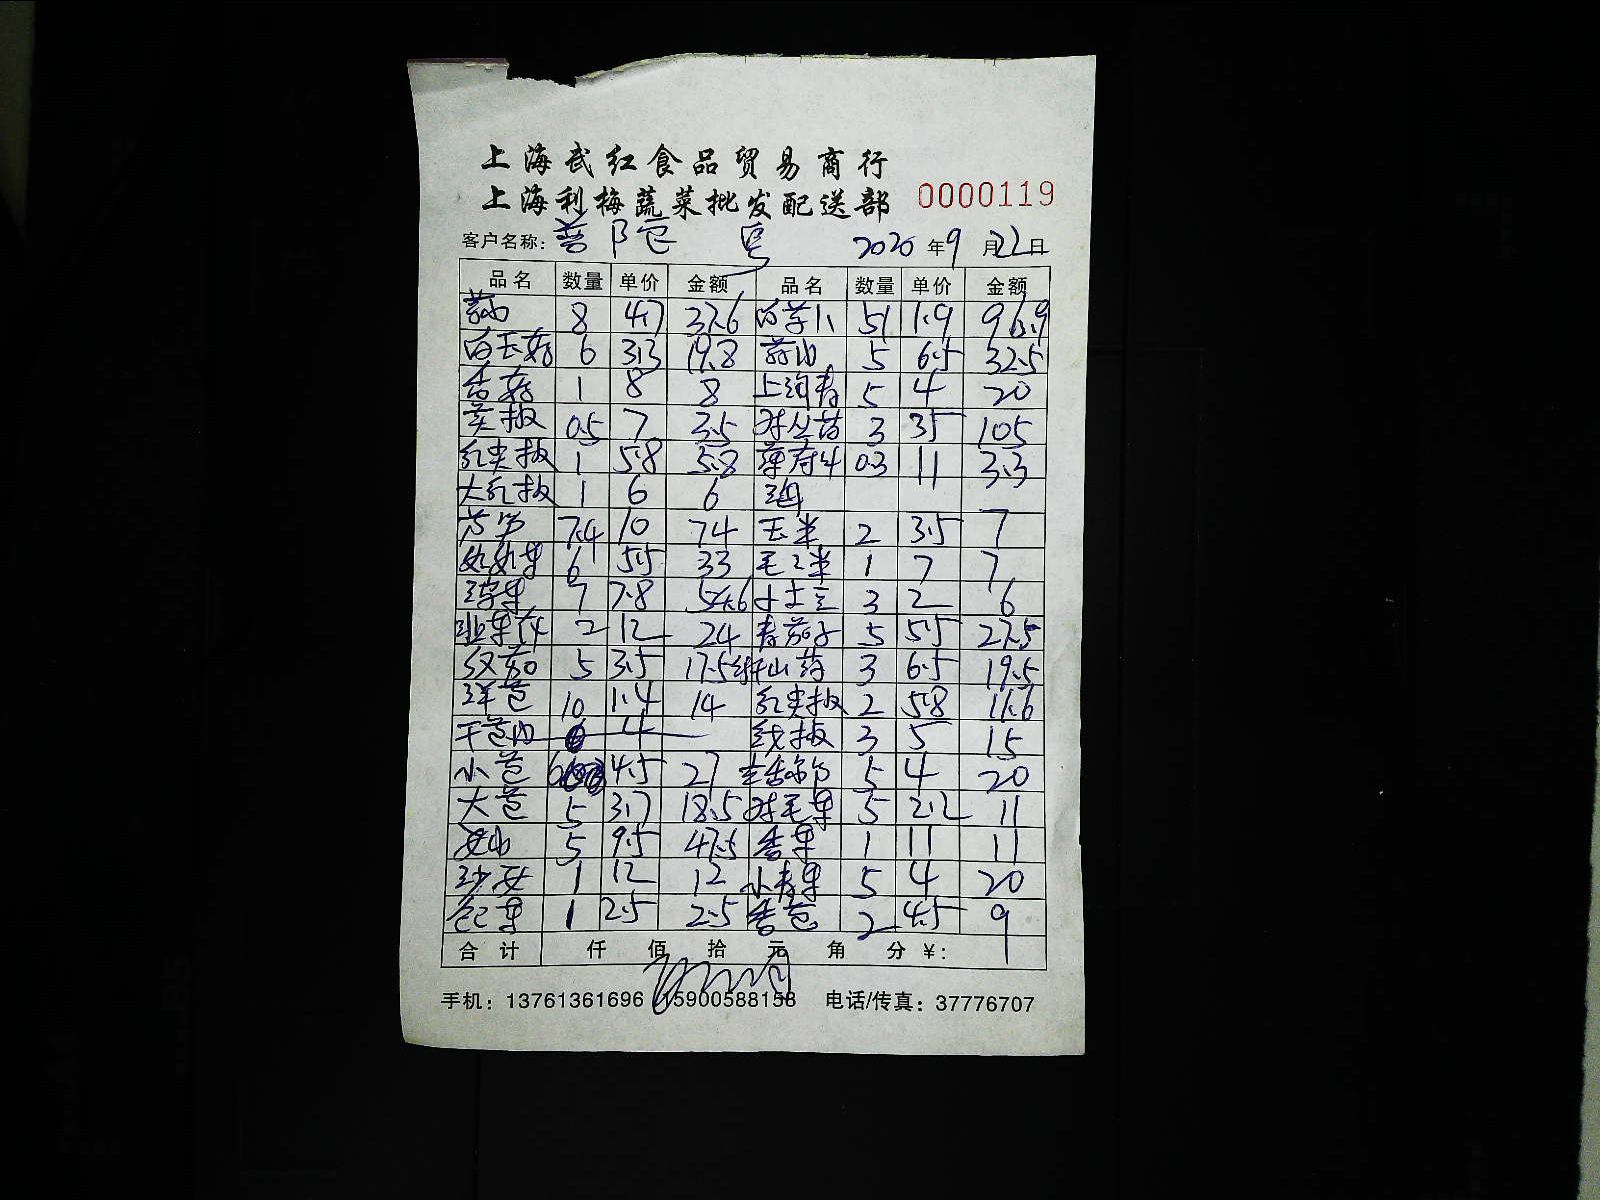 上海武红食品贸易商行
上海利梅蔬菜批发配送部 0000119
客户名称: 2020年9月22日
品名 数量 单价 金额 品名 数量 单价 金额
8 4.7 37.6 51 1.9 96.9
白玉菇 6 3.3 19.8 5 6.5 32.5
香菇 1 8 8 上海青 5 4 20
黄椒 0.5 7 3.5 3 35 105
红尖椒 1 5.8 5.8 薄荷叶 0.3 11 3.3
大红椒 1 6 6
芦笋 7.4 10 74 玉米 2 3.5 7
6 5.5 33 1 7 7
7 7.8 54.6 小土豆 3 2 6
2 12 24 青茄子 5 5.5 27.5
5 3.5 17.5 山药 3 6.5 19.5
洋葱 10 1.4 14 红尖椒 2 5.8 11.6
干葱肉 4 线椒 3 5 15
小葱 6 4.5 27 5 4 20
大葱 5 3.7 18.5 5 2.2 11
5 9.5 47.5 香菜 1 11 11
沙姜 1 12 12 小青菜 5 4 20
1 2.5 2.5 香葱 2 4.5 9
合计 仟 佰 拾 元 角 分 ¥:
手机: 13761361696 15900588158 电话/传真: 37776707